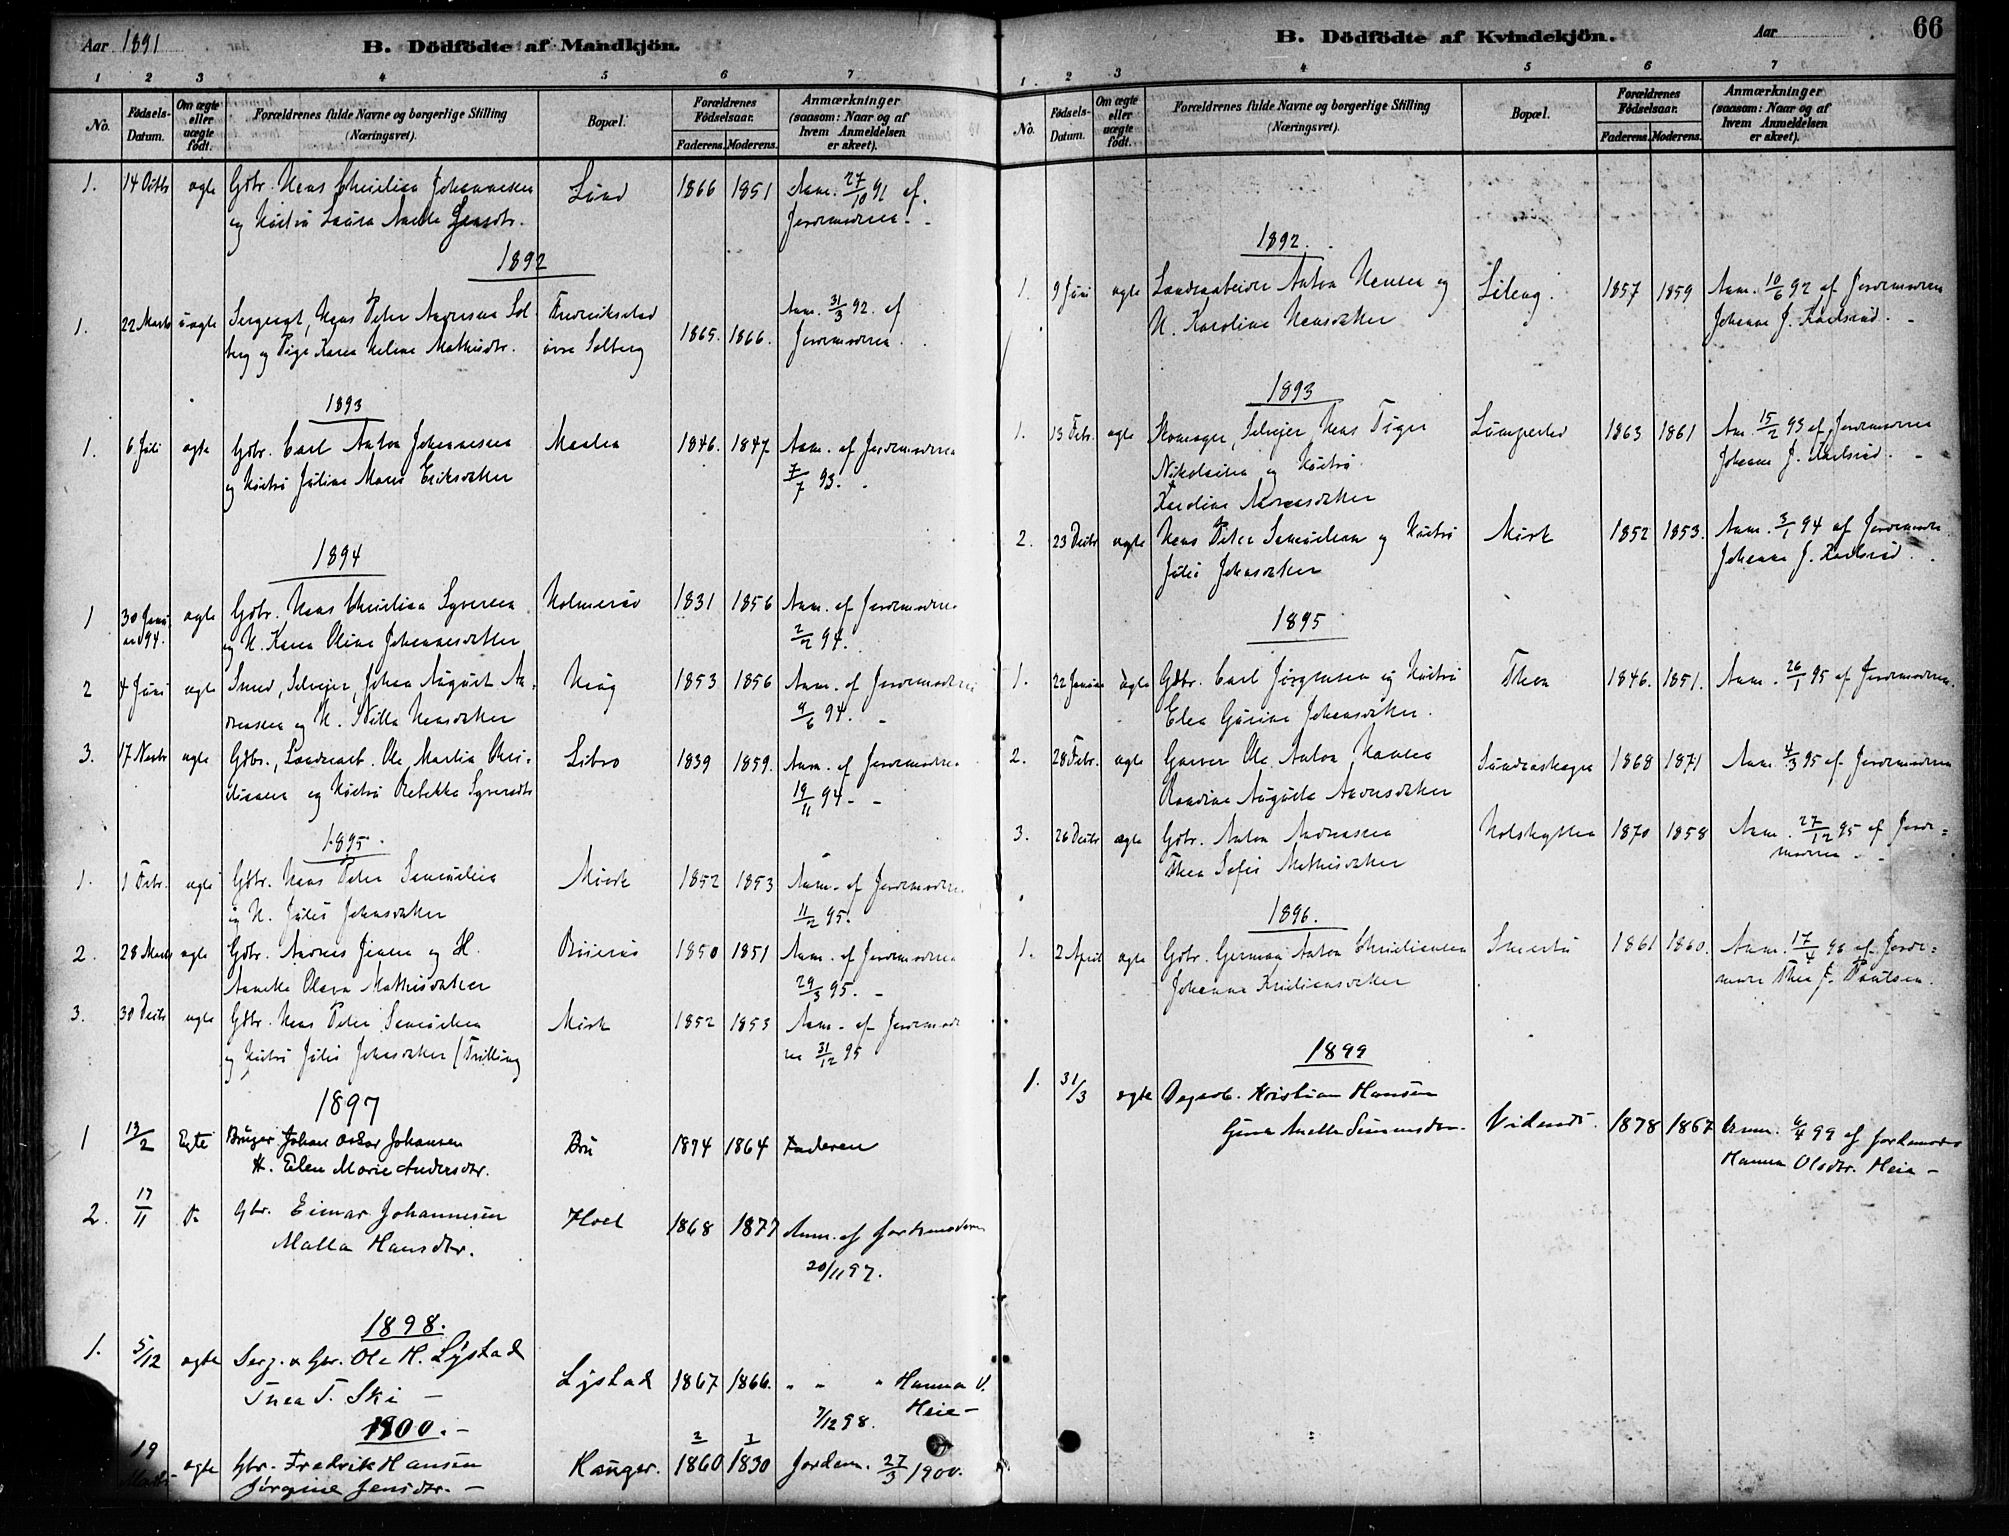 Aar 1891
B. Dödfödte af Mandkjön.
1 2 3 4 5 6 7
No. Födsels-Datum. Om ægte eller uægte født. Forældrenes fulde Navne og borgerlige Stilling (Næringsvei). Bopæl. Forældrenes Födselsaar. Faderens. Moderens. Anmærkninger (saasom: Naar og af hvem Anmeldelsen er skeet).
1. 14 Octbr ægte Gdbr. Hans Christian Johannesen Lund 1866 1851 Anm. 27/10 91 af
og Hustru Laura Jordemoderen.
1892
1. 22 Marts uægte Sergeant, Hans Peter Andersen Sol- Fredrikstad 1865. 1866. Anm. 31/3 92. af
berg og Pige Karen Helene Mathisdtr. øvre Solberg Jordemoderen.
1893
1. 6 Juli ægte Gdbr. Carl Anton Johannesen 1846. 1847. Anm. af Jordemoderen
og Hustru Juline Marie Eriksdatter 7/7 93.
1894
1 30 Janu- ægte Gdbr. Hans Christian Syversen 1831 1856 Anm. af Jordemoderen
ar 94. og H. Karen Oline Johannesdatter 2/2 94.
2 4 Juni ægte Smed, Selveier, Johan August An- 1853 1856 Anm. af Jordemoderen
dersen og H. Hansdatter 9/6 94.
3. 17 Novbr ægte Gdbr., Landarb. Ole Martin Chri- 1839 1859. Anm. af Jordemoderen
stiansen og Hustru Rebekka Syversdtr 19/11 94
1895.
1. 1 Febr. ægte Gdbr. Hans Peter Samuelsen Mork 1852 1853 Anm. af Jordemoderen
og H. Julie Johansdatter 11/2 95.
2. 28 Marts ægte Gdbr. og H. 1850 1851 Anm. af Jordemoderen
Olava Mathisdatter 29/3 95.
3. 30 Decbr ægte Gdbr. Hans Peter Samuelsen Mork 1852 1853 Anm. af Jordemode-
og Hustru Julie Johansdatter (Tvilling ren 31/12 95
1897
1 13/2 Egte Bruger Johan Oskar Johansen Bru 1874 1864 Faderen
H. Elen Marie Andersdtr.
2. 17/11 Gbr. Einar Johannesen Hoel 1868 1877 Anm. af Jordemoderen
Malla Hansdtr. 20/11 97.
1898.
1. 5/12 ægte Serg. & Gbr. Ole H. Lystad Lystad 1867 1866. " " " Hanna O.
Thea T. Ski 7/12 98. Heie
1900.
19 ægte Gbr. Fredrik Hansen Hauger. 1860 1830 Jordem. 27/3 1900.
Marts Jørgine Jensdtr.
B. Dödfödte af Kvindekjön.
Aar
66
1 2 3 4 5 6 7
No. Födsels-Datum. Om ægte eller uægte født. Forældrenes fulde Navne og borgerlige Stilling (Næringsvei). Bopæl. Forældrenes Födselsaar. Faderens. Moderens. Anmærkninger (saasom: Naar og af hvem Anmeldelsen er skeet).
1892.
1. 9 Juni ægte Landarbeider Anton Hansen og 1857 1859 Anm. 10/6 92 af Jordemoderen
H. Karoline Hansdatter Johanne J. Karlsrud.
1893
1. 13 Febr. ægte Skomager, Selveier, Hans 1863 1861 Anm. 15/2 93 af Jordemoderen
Nikolaisen og Hustru Johanne J. Karlsrud.
Karoline Andreasdatter
2. 23 Decbr ægte Hans Peter Samuelsen og Hustru Mork 1852 1853. Anm. 3/1 94 af Jordemoderen
Julie Johansdatter Johanne J. Karlsrud.
1895
1. 22 Januar ægte Gdbr. Carl Jørgensen og Hustru 1846. 1851. Anm. 26/1 95 af Jordemoderen.
Elen Gurine Johansdatter.
2. 28 Febr. ægte Garver Ole Anton Hansen 1868 1871 Anm. 4/3 95 af Jordemoderen
Randine Augusta Andersdatter
3. 26 Decbr ægte Gdbr. Anton Andreassen 1870 1858 Anm. 27/12 95 af Jorde-
Thea Sofie Mathisdatter moderen
1896.
1. 2 April ægte Gdbr. Herman Anton Christiansen 1861 1860. Anm. 17/4 96 af Jorde-
Johanne Kristiansdatter moder Thea J. Paulsen.
1899
1. 31/3 ægte Dagarb. Kristian Hansen
Gina Anette Simensdtr. 1878 1867 Anm. 6/4 99 af Jordemoder
Hanna Olsdtr. Heie